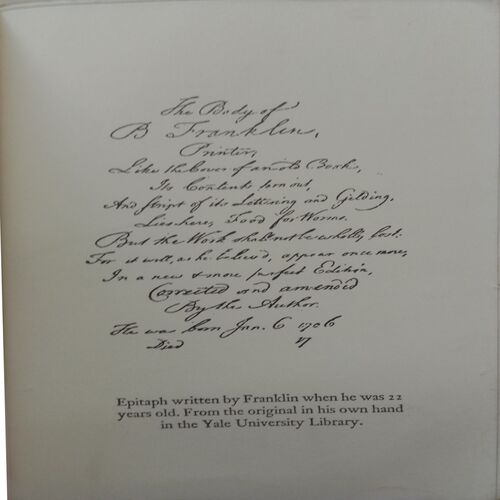 The Body of
B Franklin,
Printer,
Like the Cover of an old Book,
Its Contents torn out,
And stript of its Lettering and Gilding,
Lies here, Food for Worms.
But the Work shall not be wholly lost:
For it will, as he believ'd, appear once more,
In a new & more perfect Edition,
Corrected and amended
By the Author.
He was born Jan. 6 1706
Died 17
Epitaph written by Franklin when he was 22
years old. From the original in his own hand
in the Yale University Library.